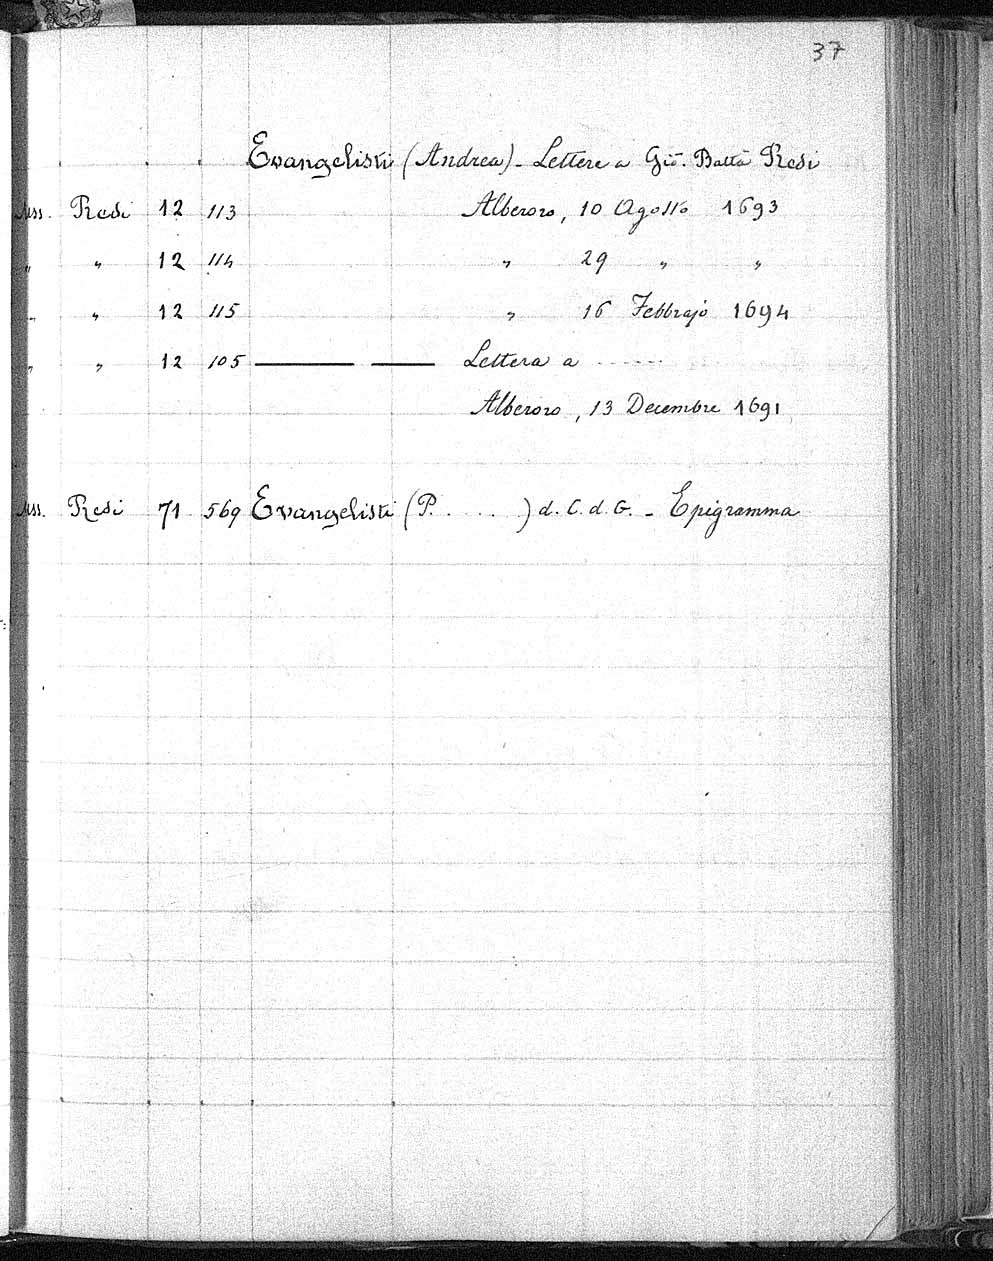 37
Evangelisti (Andrea) - Lettere a Gio. Batta Redi
Mss. Redi 12 113 Alberoro, 10 Agosto 1693
" " 12 114 " 29 " "
" " 12 115 " 16 Febbrajo 1694
" " 12 105 ——— —— Lettera a ......
Alberoro, 13 Decembre 1691
Mss. Redi 71 569 Evangelisti (P. . . . . ) d. C. d. G. - Epigramma